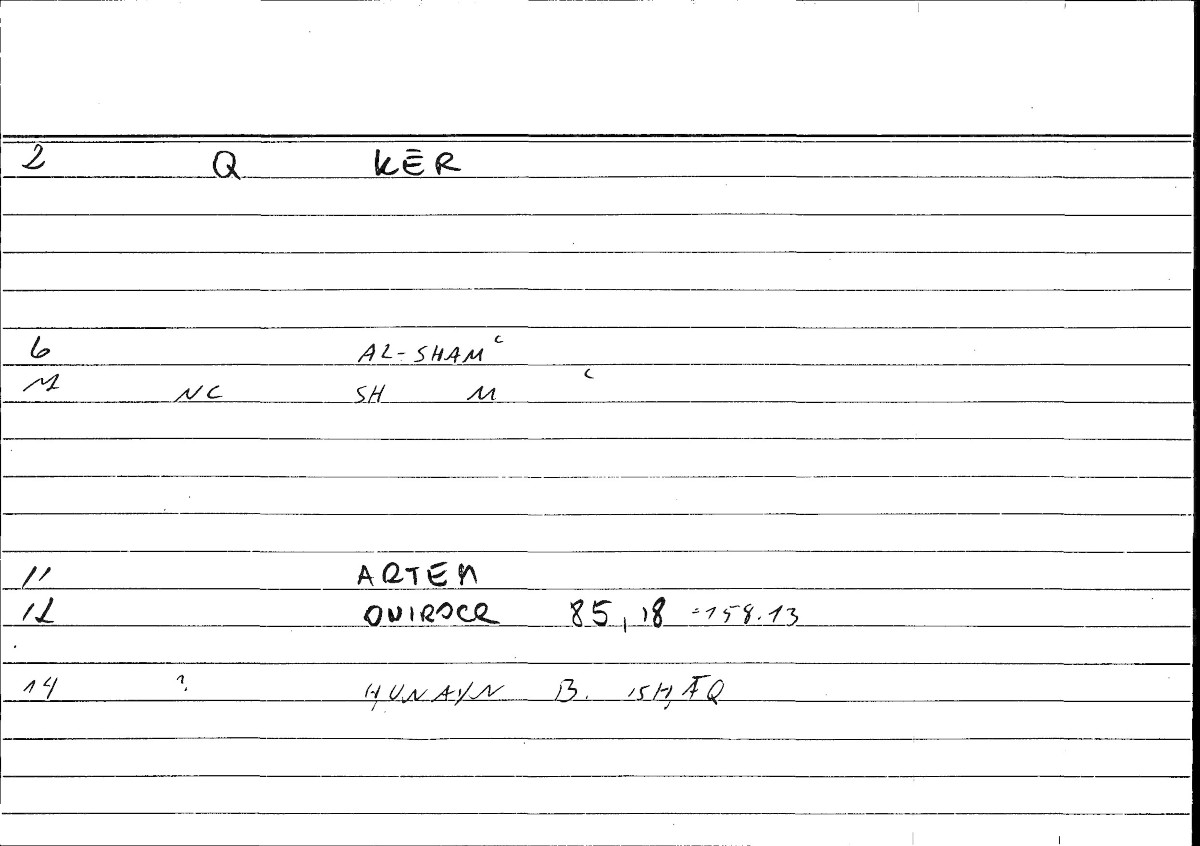 2 Q KĒR
6 AL-SHAMʿ
M NC SH M ʿ
11 ARTEM
12 ONIROCR 85,18 =158.13
14 ? ḤUNAYN B. ISḤĀQ